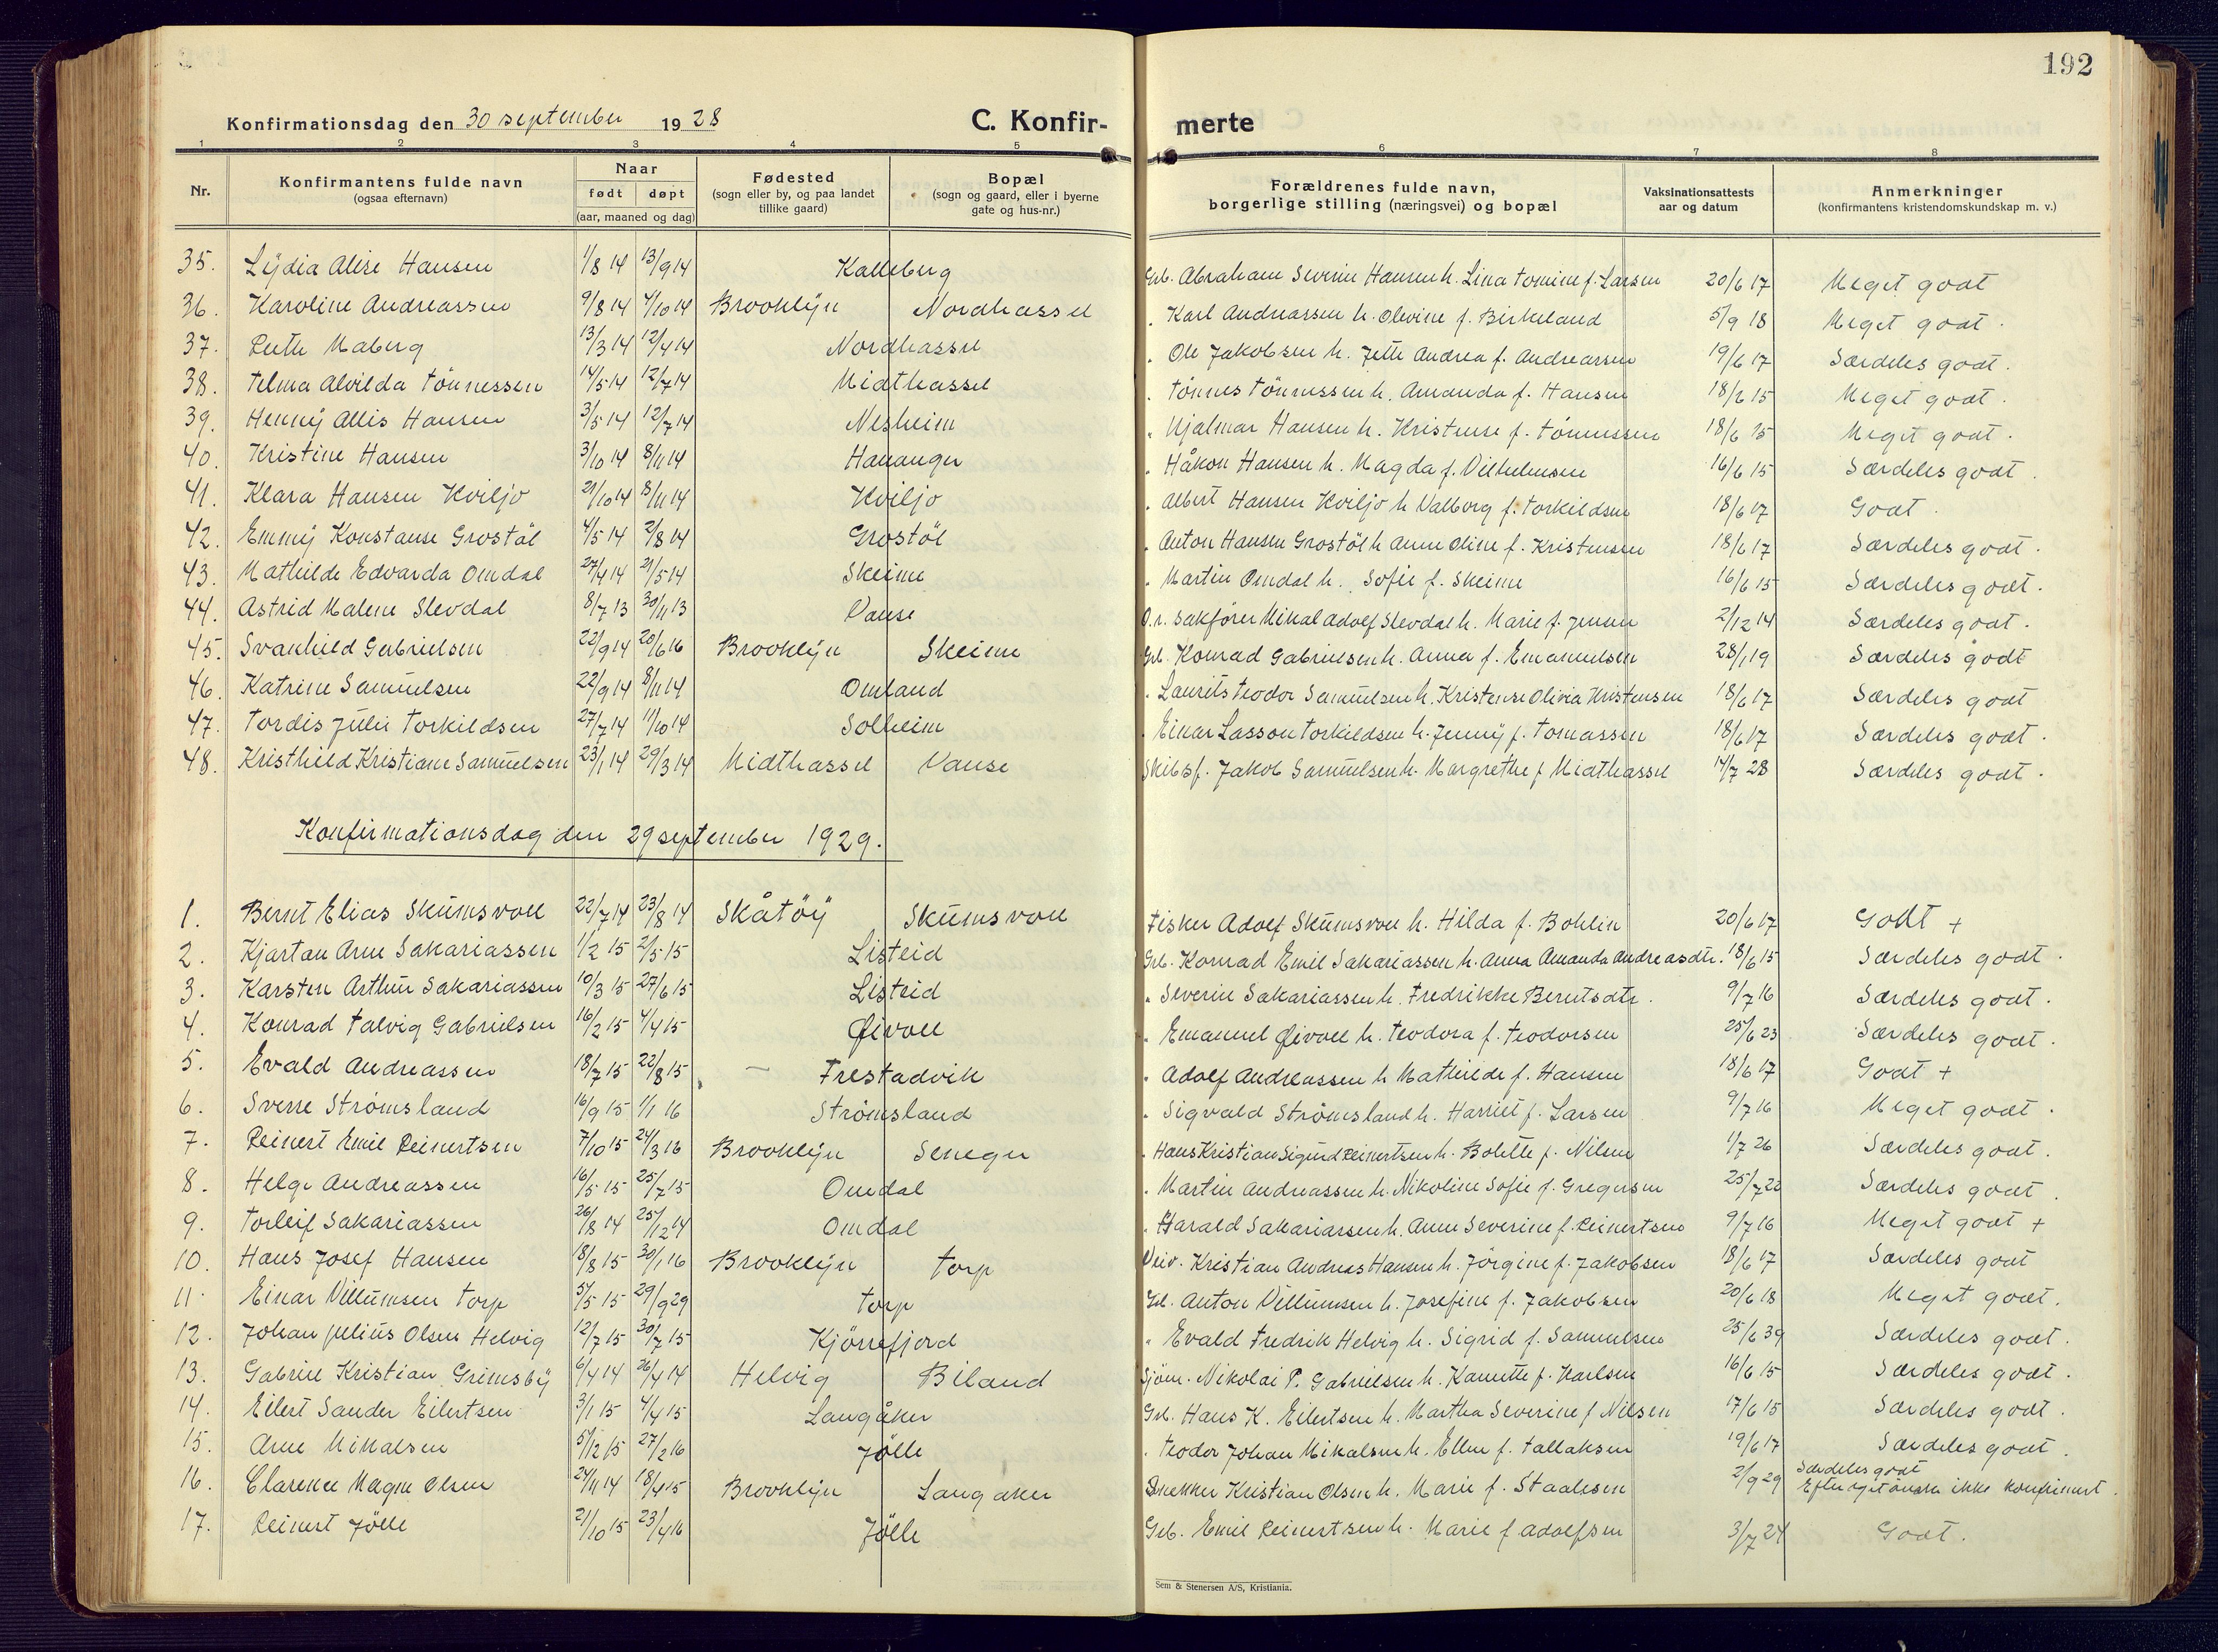 192
Konfirmationsdag den 30 september 1928
C. Konfirmerte
1 2 3 4 5 6 7 8
Nr.
Konfirmantens fulde navn
(ogsaa efternavn)
Naar
født døpt
(aar, maaned og dag)
Fødested
(sogn eller by, og paa landet
tillike gaard)
Bopæl
(sogn og gaard, eller i byerne
gate og hus-nr.)
Forældrenes fulde navn,
borgerlige stilling (næringsvei) og bopæl
Vaksinationsattests
aar og datum
Anmerkninger
(konfirmantens kristendomskundskap m. v.)
35. Lydia Alise Hansen 1/8 14 13/9 14 Kalleberg Grb. Abraham Severin Hansen h. Lina Tomine f. Larsen 20/6 17 Meget godt
36. Karoline Andreassen 9/8 14 4/10 14 Brooklyn Nordhassel " Karl Andreassen h. Olevine f. Birkeland 5/9 18 Meget godt.
37. Ruth Maberg 13/3 14 12/4 14 Nordhassel " Ole Jakobsen h. Jette Andrea f. Andreassen 19/6 17 Særdeles godt.
38. Telma Alvilda Tönnessen 14/5 14 12/7 14 Midthassel " Tönnes Tönnessen h. Amanda f. Hansen 18/6 15 Meget godt.
39. Henny Allis Hansen 3/5 14 12/7 14 Nesheim " Hjalmar Hansen h. Kristense f. Tönnessen 18/6 15 Meget godt.
40. Kristine Hansen 3/10 14 8/11 14 Hananger " Håkon Hansen h. Magda f. Vilhelmsen 16/6 15 Særdeles godt.
41. Klara Hansen Kviljo 21/10 14 8/11 14 Kviljo " Albert Hansen Kviljo h Valborg f. Torkildsen 18/6 17 Godt.
42. Emmy Konstanse Grostöl 4/5 14 2/8 14 Grostöl " Anton Hansen Grostöl h Anne Oline f. Kristensen 18/6 17 Særdeles godt.
43. Mathilde Edvarda Omdal 27/4 14 21/5 14 Skeime " Martin Omdal h. Sofie f. Skeime 16/6 15 Særdeles godt.
44. Astrid Malene Slevdal 8/7 13 30/11 13 Vanse O.r. sakfører Mikal Adolf Slevdal h. Marie f. Jensen 2/12 14 Særdeles godt.
45. Svanhild Gabrielsen 22/9 14 20/6 16 Brooklyn Skeime Grb. Konrad Gabrielsen h. Anna f. Emanuelsen 28/1 19 Særdeles godt
46. Katrine Samuelsen 22/9 14 8/11 14 Omland " Laurits Teodor Samuelsen h. Kristense Olivia Kristensen 18/6 17 Særdeles godt
47. Tordis Julie Torkildsen 27/7 14 11/10 14 Solheim " Einar Lasson Torkildsen h. Jenny f. Tomassen 18/6 17 Særdeles godt.
48. Kristhild Kristiane Samuelsen 23/1 14 29/3 14 Midthassel Vanse Skibsf. Jakob Samuelsen h. Margrethe f Midthassel 14/7 28 Særdeles godt.
Konfirmationsdag den 29 september 1929.
1. Bernt Elias Skumsvoll 22/7 14 23/8 14 Skåtöy Skumsvoll Fisker Adolf Skumsvoll h. Hilda f. Bohlin 20/6 17 Godt +
2. Kjartan Arne Sakariassen 1/2 15 2/5 15 Listeid Grb. Konrad Emil Sakariassen h. Anna Amanda Andreasdtr. 18/6 15 Særdeles godt.
3. Karsten Arthur Sakariassen 10/3 15 27/6 15 Listeid " Severin Sakariassen h. Fredrikke Berntsdtr. 9/7 16 Særdeles godt.
4. Konrad Talvig Gabrielsen 16/2 15 4/4 15 Øivoll " Emanuel Øivoll h. Teodora f. Teodorsen 25/6 23 Særdeles godt.
5. Evald Andreassen 18/7 15 22/8 15 Frestadvik " Adolf Andreassen h Mathilde f. Hansen 18/6 17 Godt +
6. Sverre Strömsland 16/9 15 1/1 16 Strömsland " Sigvald Strömsland h. Harriet f. Larsen 9/7 16 Meget godt.
7. Reinert Emil Reinertsen 7/10 15 24/3 16 Brooklyn Seneger " Hans Kristian Sigurd Reinertsen h. Bolette f. Nilsen 1/7 26 Særdeles godt.
8. Helge Andreassen 16/5 15 25/7 15 Omdal " Martin Andreassen h. Nikoline Sofie f. Gregersen 25/7 22 Særdeles godt.
9. Torleif Sakariassen 26/8 14 25/12 14 Omdal " Harald Sakariassen h. Anne Severine f. Reinertsen 9/7 16 Meget godt +
10. Hans Josef Hansen 18/8 15 30/1 16 Brooklyn Torp Kristian Andreas Hansen h. Jörgine f. Jakobsen 18/6 17 Særdeles godt
11. Einar Villumsen Torp 5/5 15 29/9 29 Torp Grb. Anton Villumsen h. Josefine f. Jakobsen 20/6 18 Meget godt.
12. Johan Julius Olsen Helvig 12/7 15 30/7 15 Kjörrefjord " Evald Fredrik Helvig h. Sigrid f. Samuelsen 25/6 39 Særdeles godt.
13. Gabriel Kristian Grimsby 6/4 14 26/4 14 Helvig Biland Sjöm. Nikolai P. Gabrielsen h. Kanutte f. Karlsen 16/6 15 Særdeles godt.
14. Eilert Sander Eilertsen 3/1 15 4/4 15 Langåker Grb. Hans K. Eilertsen h. Martha Severine f Nilsen 17/6 15 Særdeles godt.
15. Arne Mikalsen 5/12 15 27/2 16 Jölle " Teodor Johan Mikalsen h. Ellen f. Tallaksen 19/6 17 Særdeles godt.
16. Clarence Magne Olsen 24/11 14 18/4 15 Brooklyn Langåker Snekker Kristian Olsen h. Marie f. Staalesen 2/9 29 Særdeles godt
Efter eget önske ikke konfirmert.
17. Reinert Jölle 21/10 15 23/4 16 Jölle Grb. Emil Reinertsen h. Marie f Adolfsen 3/7 24 Godt.
Sem & Stenersen A/S, Kristiania.